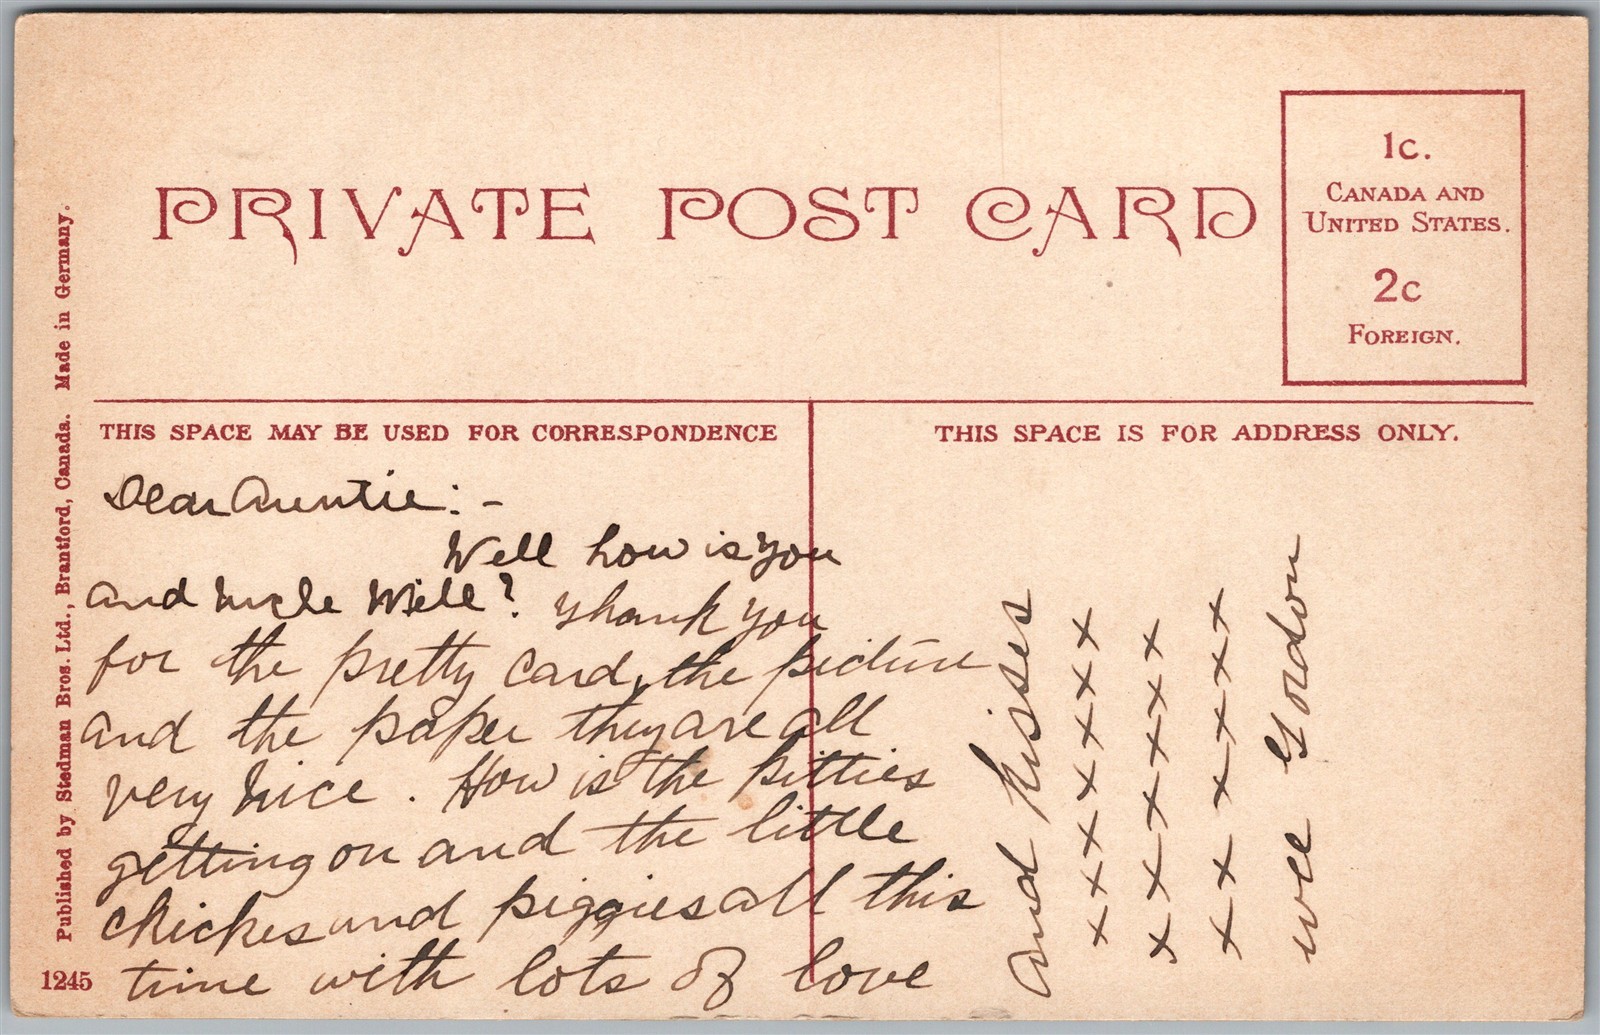 PRIVATE POST CARD
1c.
CANADA AND
UNITED STATES.
2c
FOREIGN.
Published by Stedman Bros. Ltd., Brantford, Canada. Made in Germany.
THIS SPACE MAY BE USED FOR CORRESPONDENCE
THIS SPACE IS FOR ADDRESS ONLY.
Dear Auntie:-
Well how is you
and Uncle Will? Thank you
for the pretty card, the picture
and the paper they are all
very nice. How is the kitties
getting on and the little
chickes and piggies all this
time with lots of love
and kisses
x x x x x x x
x x x x x x x
x x x x x x x
wee Gordon
1245